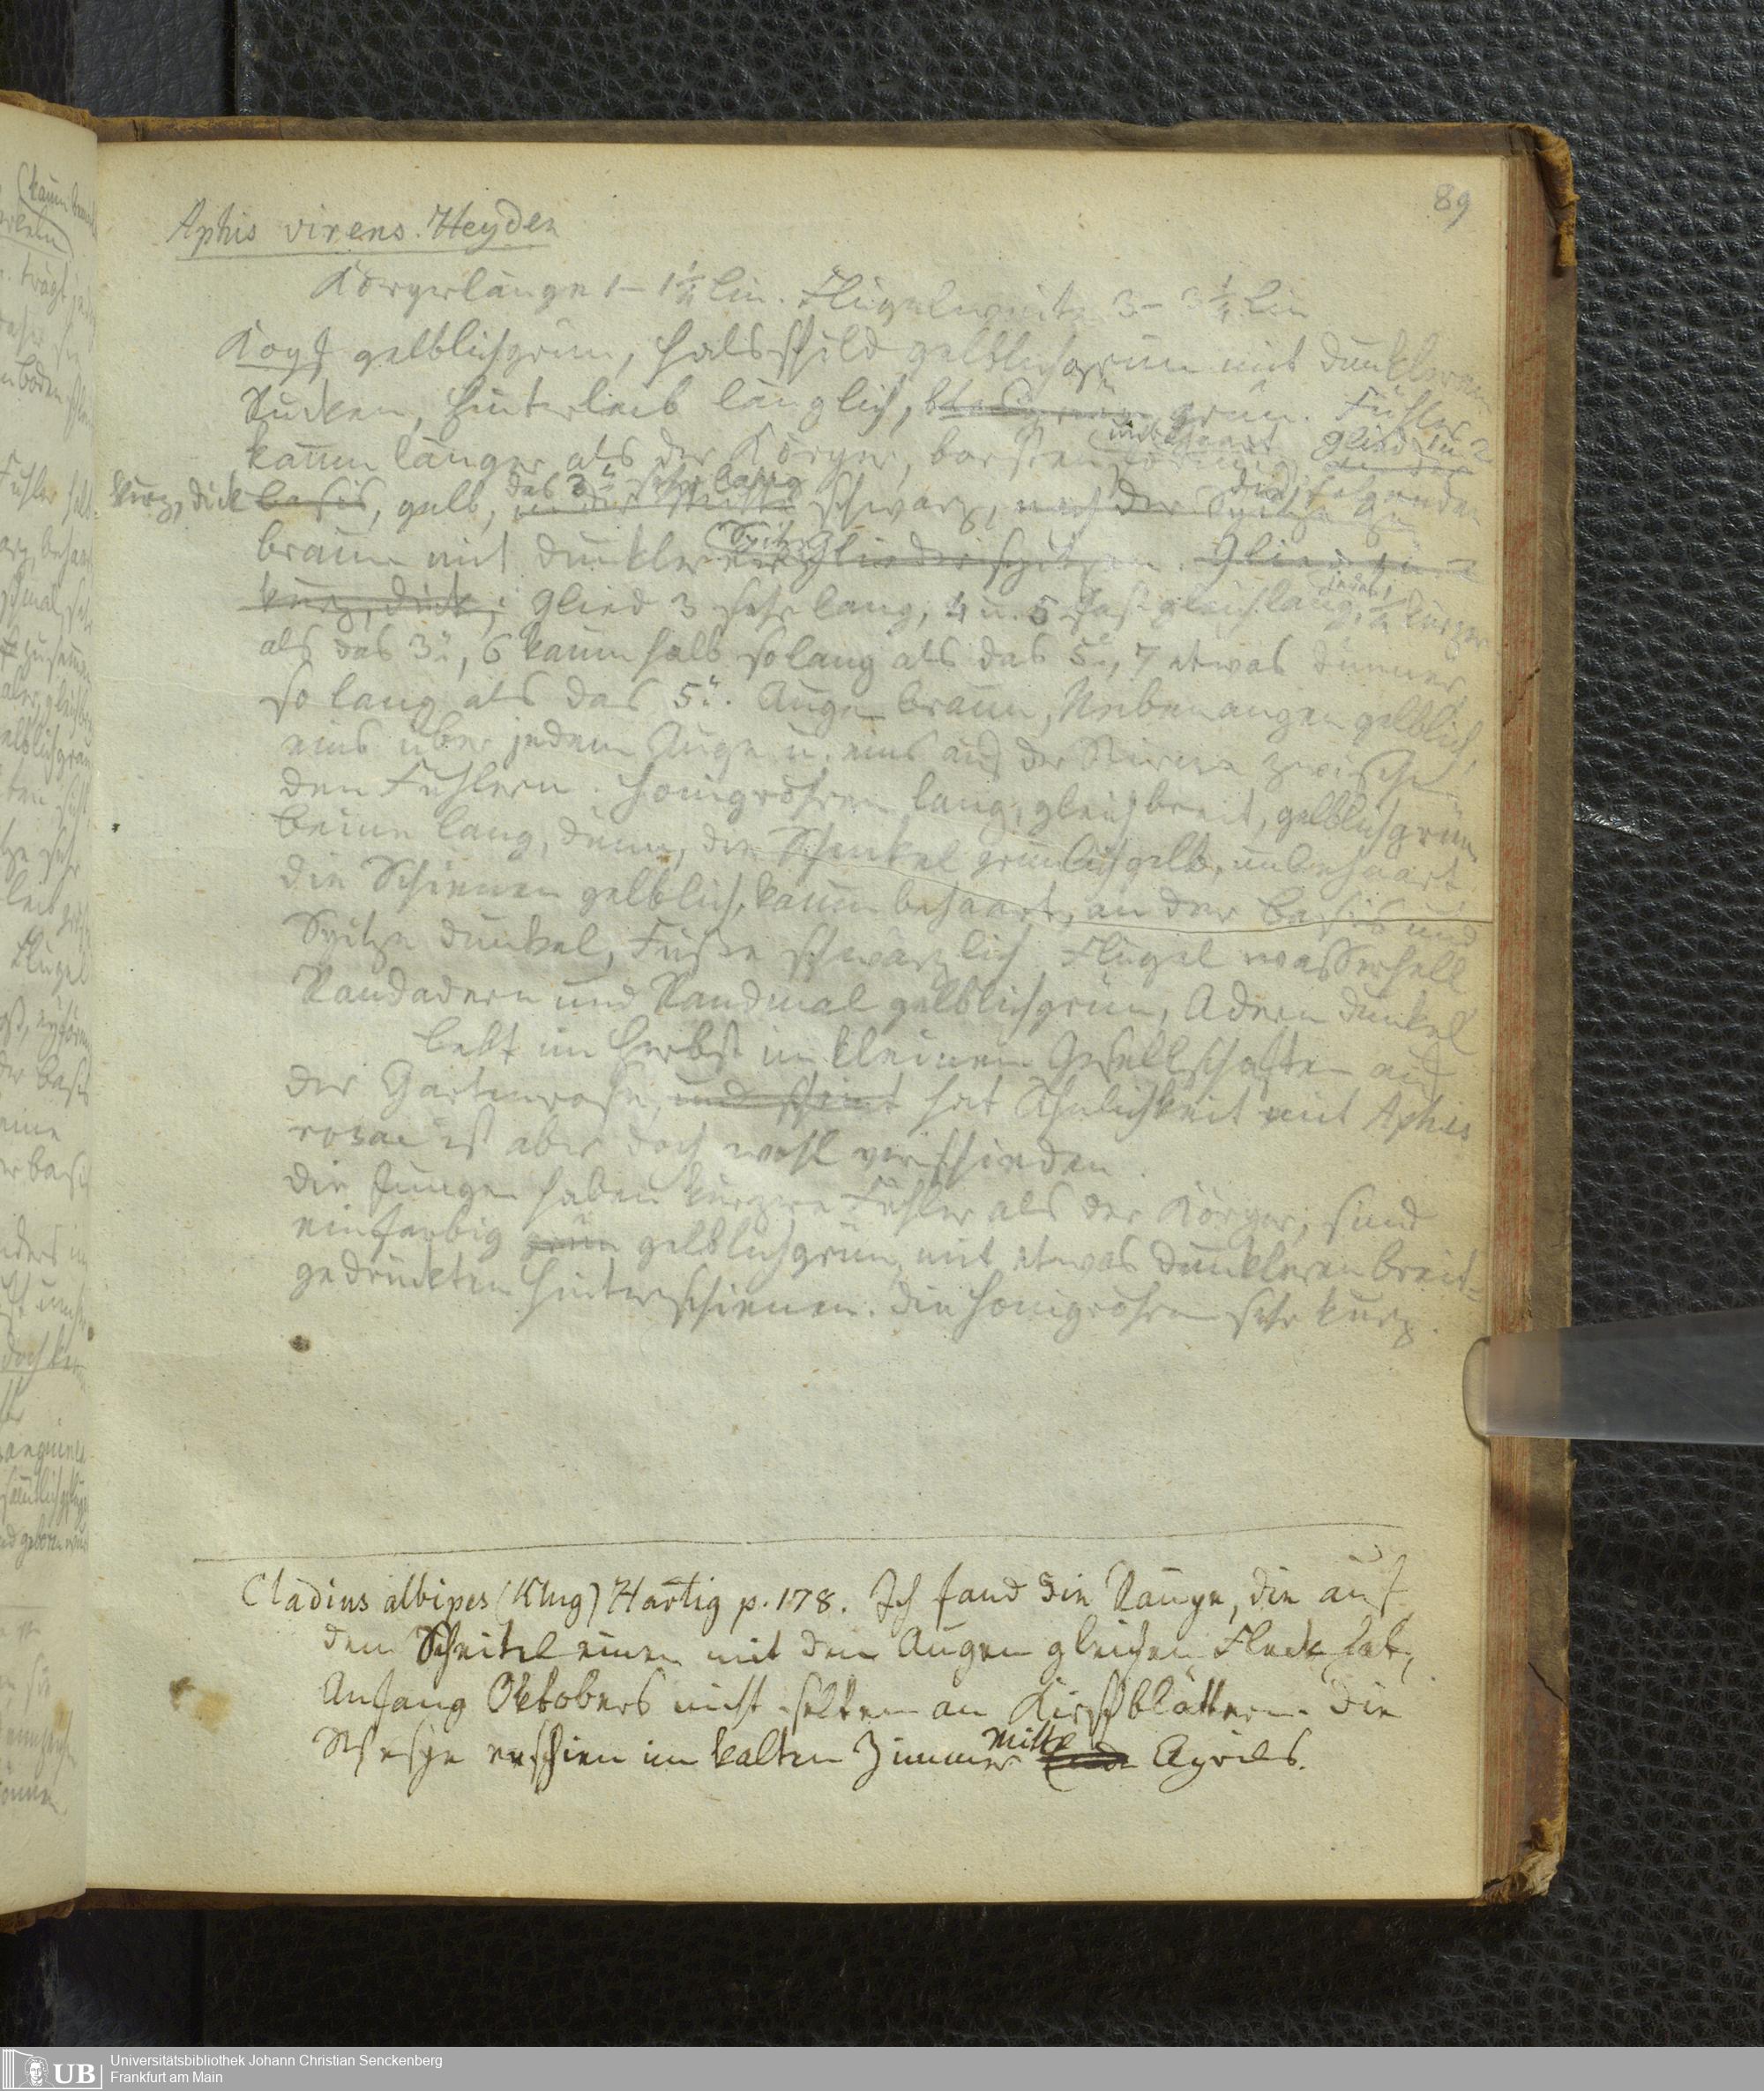 89
Aphis virens. Heyden
Körperlänge 1 - 1 1/4 lin. Flügelweite 3 - 3 1/4 lin
Kopf gelblichgrün, Halsschild gelblichgrün mit dunklerem
Rücken, Hinterleib länglich, grün. Fühler
kaum länger als der Körper, borstenförmig, unbehaart Glied 1 u 2 an der
kurz, dick basis, gelb, das 3te sehr lang in der Mitte schwarz, nach der Spitze die folgenden
braun mit dunkler Spitze Gliederspitzen. Glied 1 u. 2
kurz, dick; Glied 3 sehr lang, 4 u. 5 fast gleichlang, jedes 1/2 kürzer
als das 3te, 6 kaum halb so lang als das 5te, 7 etwas dünner,
so lang als das 5te. Augen braun, Nebenaugen gelblich,
eins über jedem Auge u. eins auf der Stirne zwischen
den Fühlern. Honigröhren lang, gleichbreit, gelblichgrün
Beine lang, dünn, die Schenkel grünlichgelb, unbehaart
die Schienen gelblich, kaum behaart, an der Basis und
Spitze dunkel, Füße schwärzlich. Flügel wasserhell
Randadern und Randmal gelblichgrün, Adern dunkel
Lebt im Herbst in kleinen Gesellschaften auf
der Gartenrose, und scheint hat Ähnlichkeit mit Aphis
rosae ist aber doch wohl verschieden.
Die Jungen haben kürzere Fühler als der Körper; sind
einfarbig grün gelblichgrün, mit etwas dunkleren breit-
gedrückten Hinterschienen. Die Honigröhren sehr kurz.
Cladius albipes (Klug) Hartig p. 178. Ich fand die Raupe, die auf
dem Scheitel einen mit den Augen gleichen Fleck hat,
Anfang Oktobers nicht selten an Kirschblättern. Die
Wespe erschien im kalten Zimmer Mitte Ende Aprils.
Universitätsbibliothek Johann Christian Senckenberg
Frankfurt am Main
UB